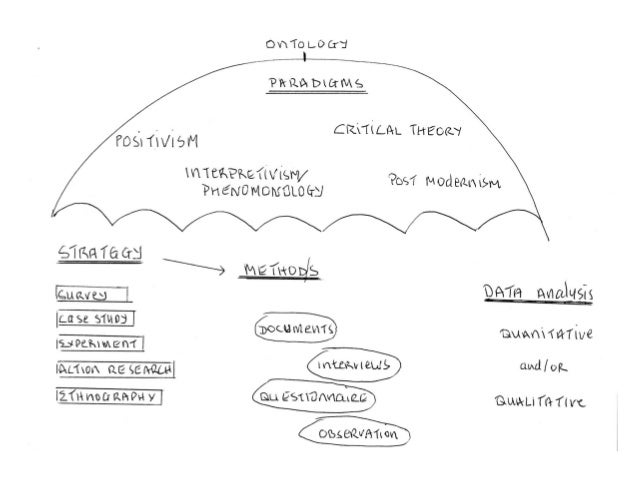 ONTOLOGY
PARADIGMS
POSITIVISM
CRITICAL THEORY
INTERPRETIVISM/
PHENOMONOLOGY
POST MODERNISM
STRATEGY
METHODS
DATA Analysis
SURVEY
CASE STUDY
EXPERIMENT
ACTION RESEARCH
ETHNOGRAPHY
DOCUMENTS
INTERVIEWS
QUESTIONNAIRE
OBSERVATION
QUANITATIVE
and/OR
QUALITATIVE